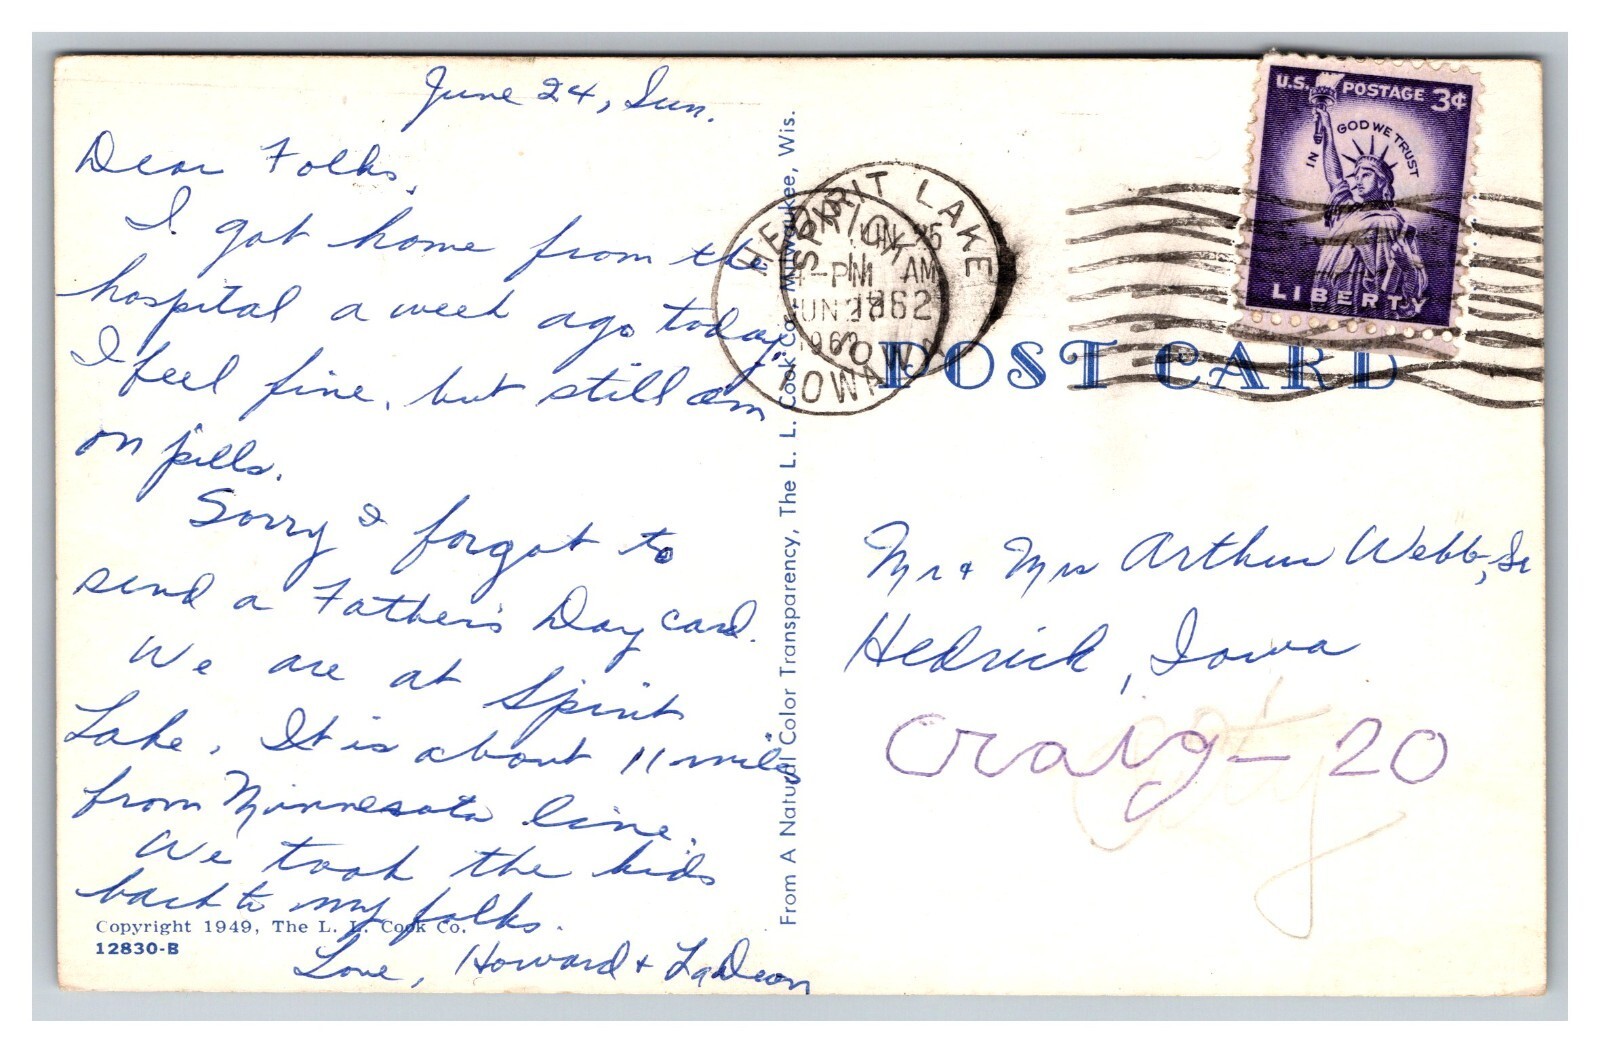 June 24, Sun.
Dear Folks,
I got home from the
hospital a week ago today.
I feel fine, but still am
on pills.
Sorry I forgot to
send a Father's Day card.
We are at Spirit
Lake. It is about 11 miles
from Minnesota line.
We took the kids
back to my folks.
Love, Howard + LaDeon
Copyright 1949, The L. L. Cook Co.
12830-B
From A Natural Color Transparency, The L. L. Cook Co., Milwaukee, Wis.
U.S. POSTAGE 3¢
IN GOD WE TRUST
LIBERTY
SPIRIT LAKE
JUN 25
AM
1962
IOWA
HEDRICK
PM
JUN
IOWA
POST CARD
Mr + Mrs Arthur Webb, Sr
Hedrick, Iowa
Craig - 20